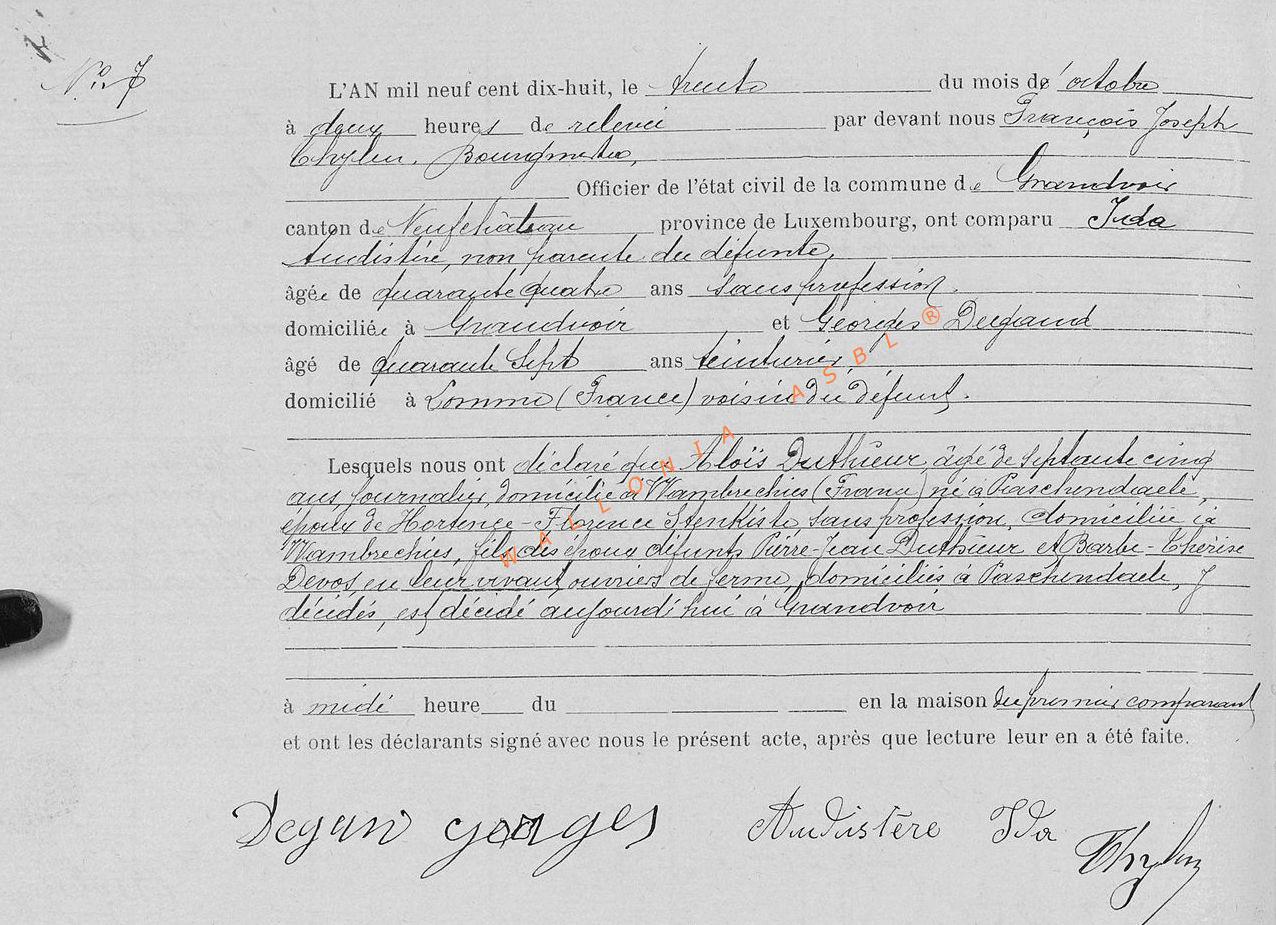 N° 7
L'AN mil neuf cent dix-huit, le trente du mois d'octobre
à deux heures de relevée par devant nous François Joseph
Thylen, Bourgmestre,
Officier de l'état civil de la commune de Grandvoir
canton de Neufchâteau province de Luxembourg, ont comparu Ida
Audistère, non parente du défunte,
âgée de quarante quatre ans sans profession.
domiciliée à Grandvoir et Georges Degand
âgé de quarante sept ans teinturier,
domicilié à Lomme (France) voisin du défunt.
Lesquels nous ont déclaré que Aloïs Duthieur, âgé de septante cinq
ans, journalier, domicilié à Wambrechies (France) né à Paschendaele,
époux de Hortence-Florence Stenkiste sans profession, domiciliée à
Wambrechies, fils des époux défunts Pierre-Jean Duthieur et Barbe-Thérèse
Devos, en leur vivant ouvriers de ferme, domiciliés à Paschendaele, y
décédés, est décédé aujourd'hui à Grandvoir
à midi heure du en la maison du premier comparant
et ont les déclarants signé avec nous le présent acte, après que lecture leur en a été faite.
Degan georges Audistère Ida
Thylen
WALLONIA ASBL ®